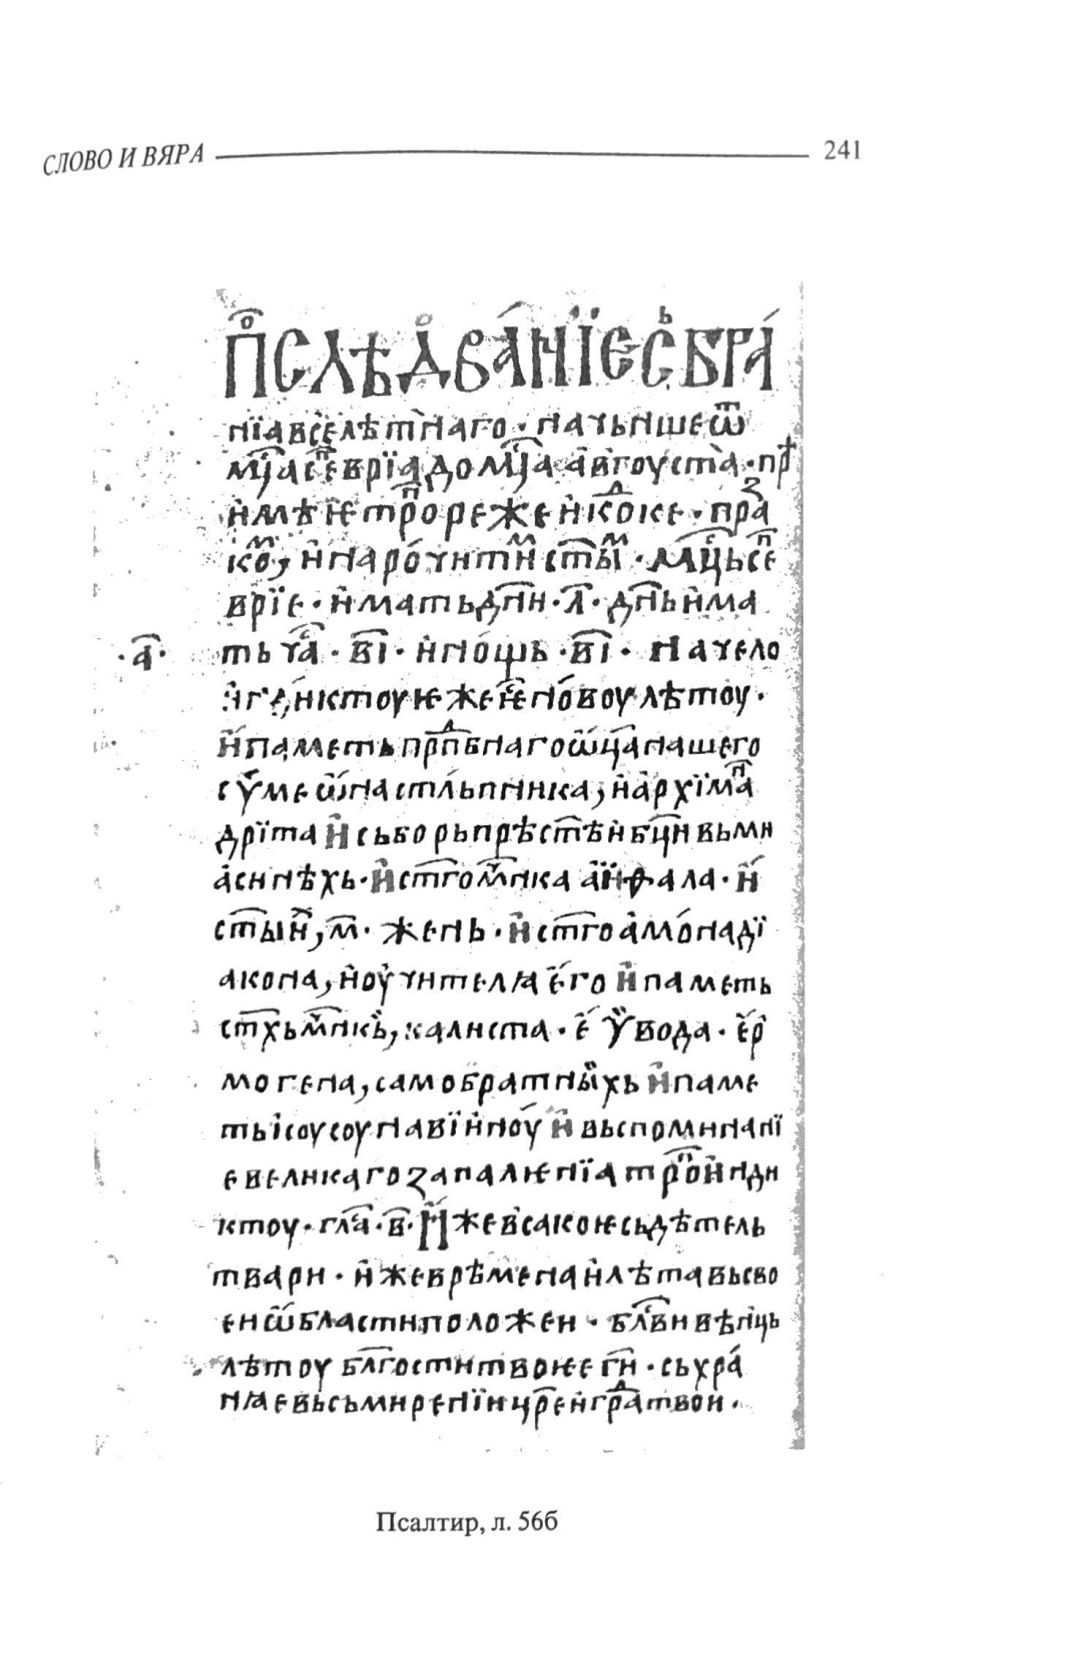 СЛОВО И ВЯРА 241
П ⷪ҇СЛѢДⷪ҇ВА́НЇЕ СЬБРА́
нїа всеⷢ҇ лѣтнаго · начьнше ѿ
мⷭ҇ца сеⷫ҇еврїа до мⷭ҇ца а҆вгоуста · прⷯ
и҆млѣѥ тро́ⷫ҇ ре же и҆ коⷣке · праⷥ
коⷨ, и҆ наро́читиⷨ ст҃ыⷨ · мⷭ҇ць сеⷫ҇
врїе · и҆мать дн҃и · л҃ · дн҃ь и҆ма
·а҃· ть чаⷭ҇ · в҃і · и҆ но́щь · в҃і · Начело
и҆нѥ же еⷭ҇ но́воу лѣтоу ·
и҆ паметь прⷣпбнаго ѿца нашего
сѵ́меѡ́на стльпника, и҆ а҆рхїмаⷩ҇
дрїта и҆ сьборь прѣст҃ѣи бц҃и вь ми
а҆синѣхь · и҆ ст҃го мⷱ҇нка аїѳала · и҆
ст҃ыиⷯ, м҃ · жень · и҆ ст҃го а҆мо́на дї
акона, и҆ оу҆чителꙗ е҆го и҆ паметь
ст҃хь мⷱ҇никь, калиста · е҆ѵ҆вода · е҆р
могена, самобратныихь и҆ паме
ть і҆соусоу навїи́ноу и҆ вьспоминанї
е великаго запалѥнїа троⷫ҇ и҆нди
ктоу · глаⷭ҇ · в҃ · И҆же всакоѥ сьдѣтель
твари · и҆же врѣмена и҆ лѣта вь сво
еи ѡ҆бласти положеи · блⷭ҇ви вѣнць
лѣтоу бл҃гости твоѥе ги҃ · сьхра́
нꙗе вь сьмирени҆ цр҃е и҆ граⷣ твои ·
Псалтир, л. 56б